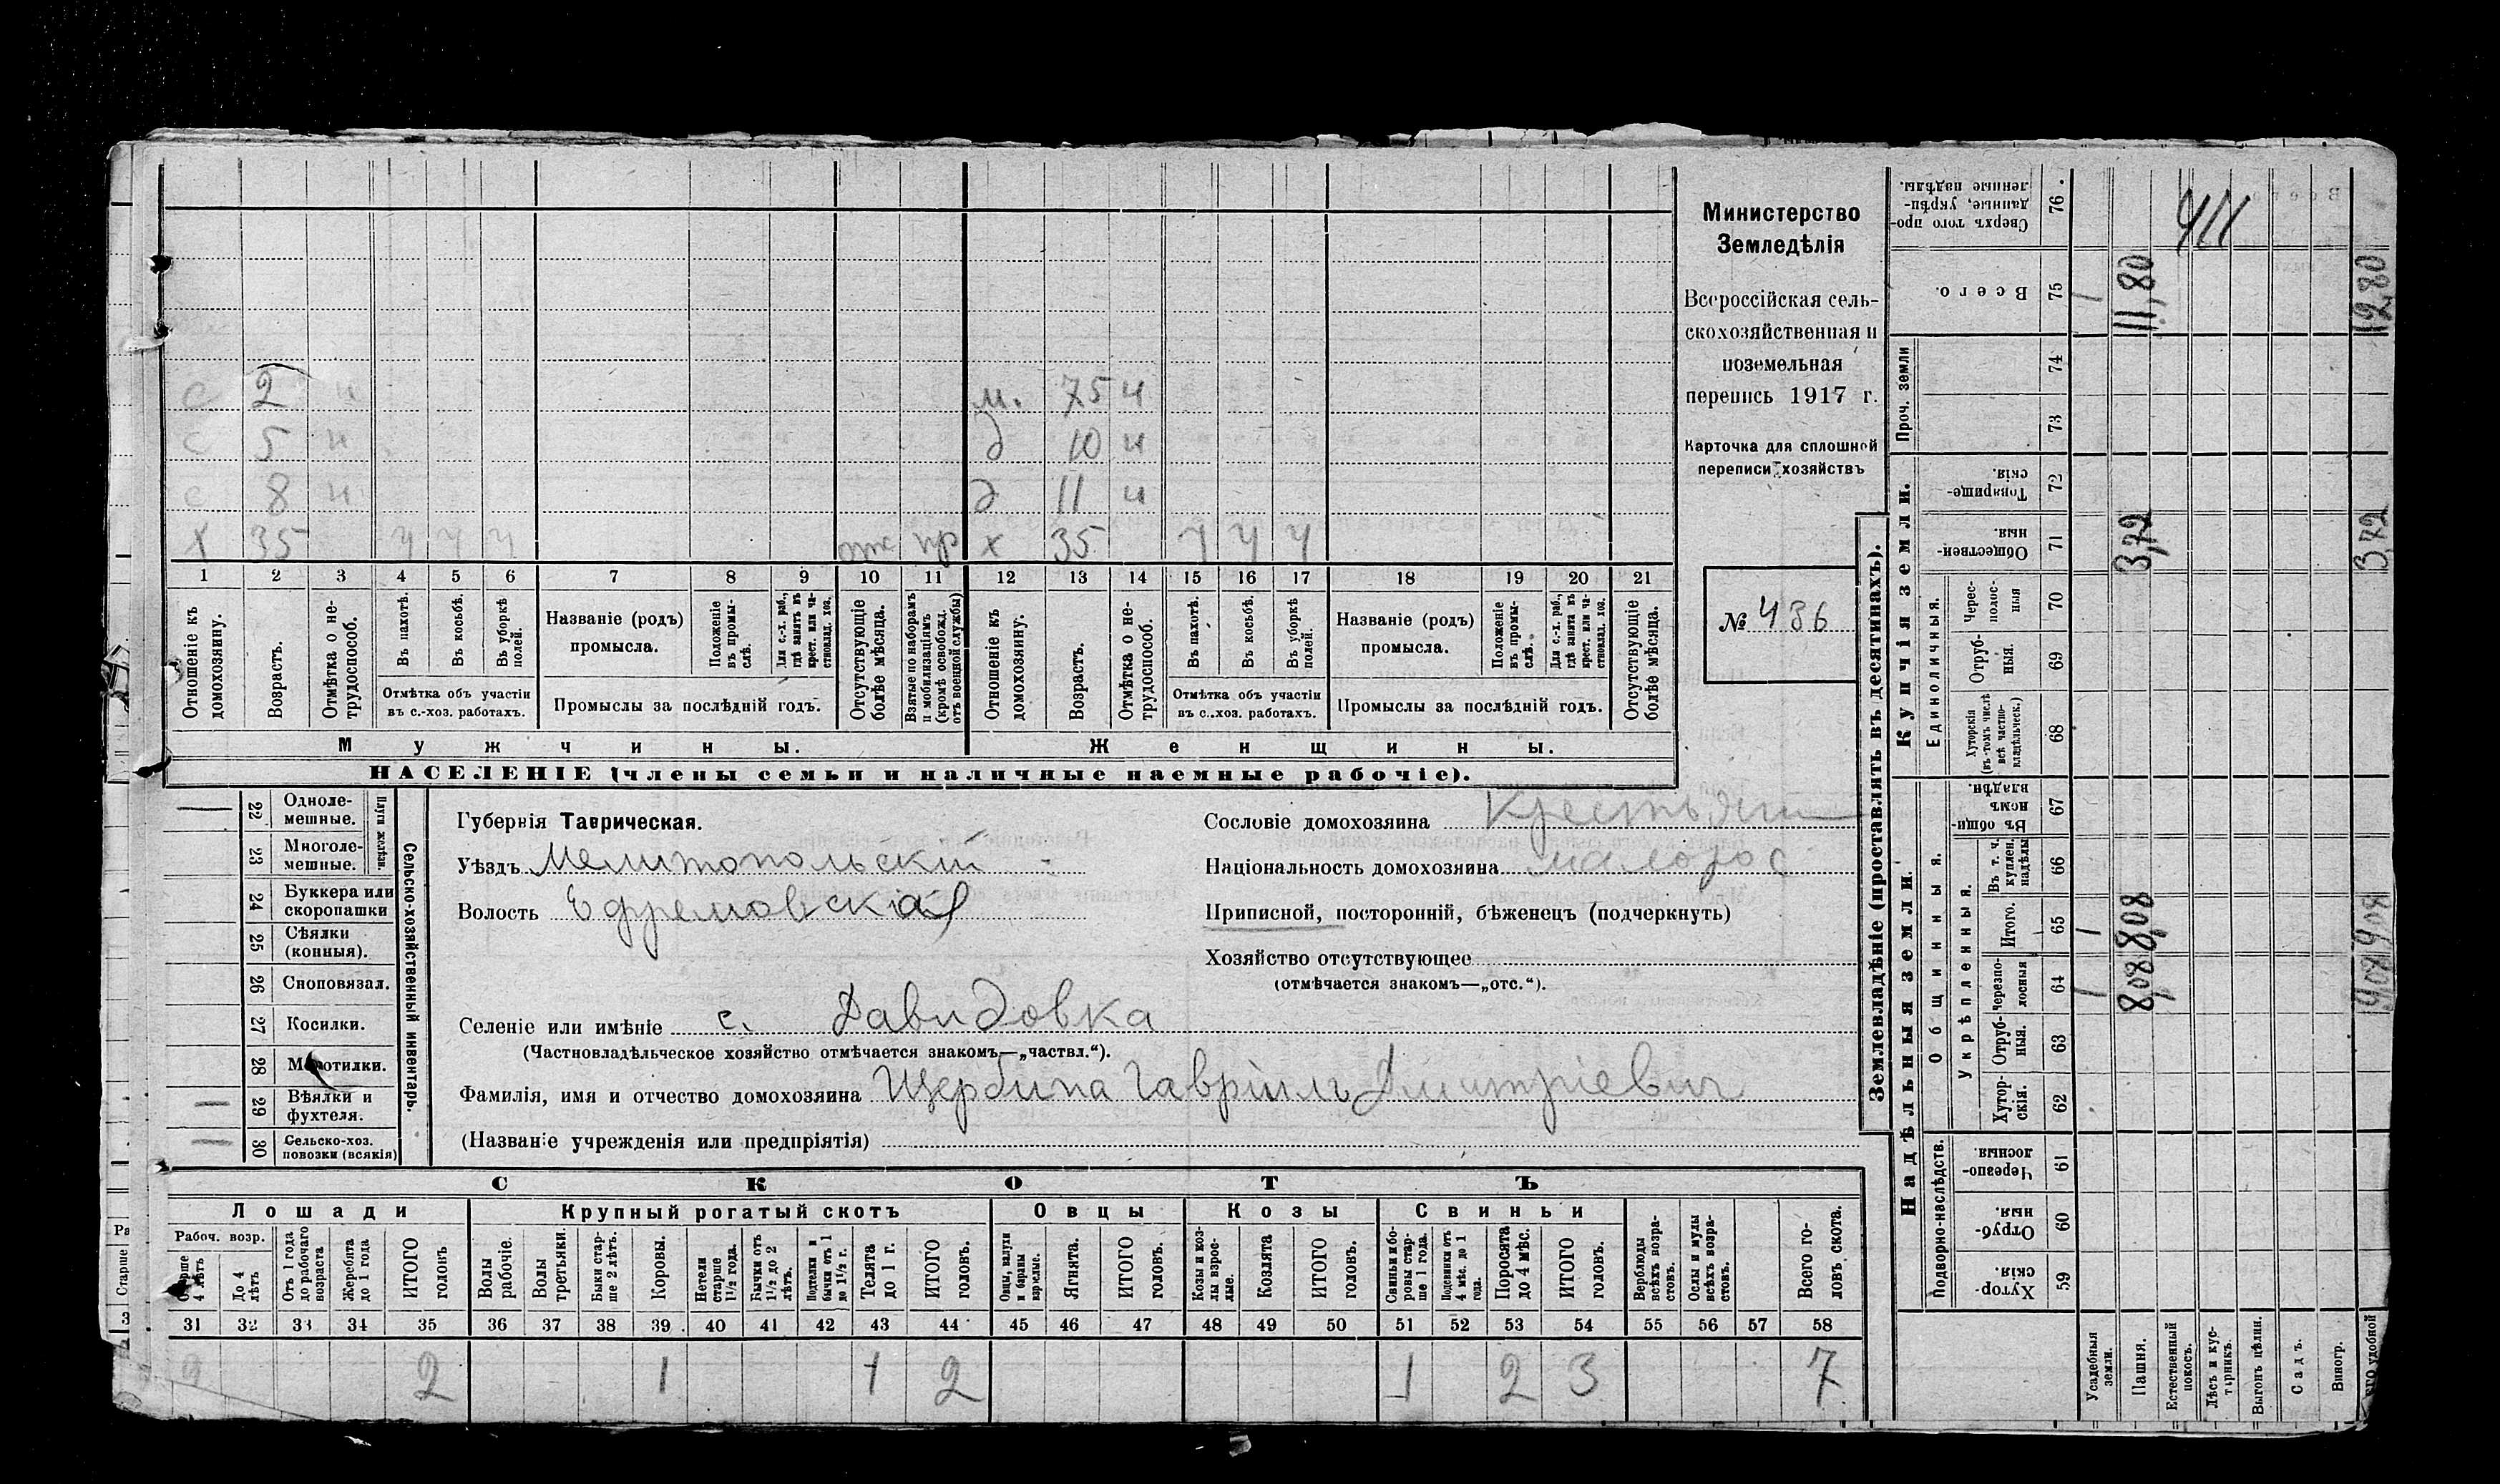 с 2 н м. 75 н
с 5 н д 10 н
с 8 н д 11 н
х 35 ч ч ч отс пр х 35 ч ч ч
1 2 3 4 5 6 7 8 9 10 11 12 13 14 15 16 17 18 19 20 21
Отношеніе къ домохозяину.
Возрастъ.
Отмѣтка о не-
трудоспособ.
Въ пахотѣ.
Въ косьбѣ.
Въ уборкѣ
полей.
Отмѣтка объ участіи
въ с.-хоз. работахъ.
Названіе (родъ)
промысла.
Положеніе
въ промы-
слѣ.
Для с.-х. раб.,
гдѣ занятъ въ
крест. или ча-
стновлад. хоз.
Промыслы за послѣдній годъ.
Отсутствующіе
болѣе мѣсяца.
Взятые по наборамъ
и мобилизаціямъ
(кромѣ освобожд.
отъ военной службы)
Отношеніе къ
домохозяину.
Возрастъ.
Отмѣтка о не-
трудоспособ.
Въ пахотѣ.
Въ косьбѣ.
Въ уборкѣ
полей.
Отмѣтка объ участіи
въ с.-хоз. работахъ.
Названіе (родъ)
промысла.
Положеніе
въ промы-
слѣ.
Для с.-х. раб.,
гдѣ занята въ
крест. или ча-
стновлад. хоз.
Промыслы за послѣдній годъ.
Отсутствующіе
болѣе мѣсяца.
Мужчины. Женщины.
НАСЕЛЕНІЕ (члены семьи и наличные наемные рабочіе).
Министерство
Земледѣлія
Всероссійская сель-
скохозяйственная и
поземельная
перепись 1917 г.
Карточка для сплошной
переписи хозяйствъ
№ 436
22 Одноле-
мешные.
23 Многоле-
мешные.
Плуги желѣзн.
24 Буккера или
скоропашки
25 Сѣялки
(конныя).
26 Сноповязал.
27 Косилки.
28 Молотилки.
29 Вѣялки и
фухтеля.
30 Сельско-хоз.
повозки (всякія)
Сельско-хозяйственный инвентарь.
Губернія Таврическая.
Уѣздъ Мелитопольскій
Волость Ефремовская
Сословіе домохозяина Крестьянин
Національность домохозяина малорос
Приписной, посторонній, бѣженецъ (подчеркнуть)
Хозяйство отсутствующее
(отмѣчается знакомъ—„отс.“).
Селеніе или имѣніе с. Давидовка
(Частновладѣльческое хозяйство отмѣчается знакомъ—„частвл.“).
Фамилія, имя и отчество домохозяина Щербина Гавріилъ Дмитріевич
(Названіе учрежденія или предпріятія)
СКОТЪ
Лошади Крупный рогатый скотъ Овцы Козы Свиньи
Рабоч. возр.
Старше
4 лѣтъ
До 4
лѣтъ
Отъ 1 года
до рабочаго
возраста
Жеребята
до 1 года
ИТОГО
головъ
Волы
рабочіе.
Волы
третьяки.
Быки стар-
ше 2 лѣтъ.
Коровы.
Нетели
старше
1½ года.
Бычки отъ
1½ до 2
лѣтъ.
Подтелки и
бычки отъ 1
до 1½ г.
Телята
до 1 г.
ИТОГО
головъ.
Овцы, валухи
и бараны
взрослые.
Ягнята.
ИТОГО
головъ.
Козы и коз-
лы взрос-
лые.
Козлята
ИТОГО
головъ.
Свиньи и бо-
ровы стар-
ше 1 года.
Подсвинки отъ
4 мѣс. до 1
года.
Поросята
до 4 мѣс.
ИТОГО
головъ.
Верблюды
всѣхъ возра-
стовъ.
Ослы и мулы
всѣхъ возра-
стовъ.
Всего го-
ловъ скота.
31 32 33 34 35 36 37 38 39 40 41 42 43 44 45 46 47 48 49 50 51 52 53 54 55 56 57 58
2 2 1 1 2 1 2 3 7
Землевладѣніе (проставлять въ десятинахъ).
Надѣльныя земли.
Купчія земли.
Проч. земли
Общинныя.
Укрѣпленныя.
Подворно-наслѣдств.
Единоличныя.
Сверхъ того про-
данные, укрѣп-
ленные надѣлы.
76
Всего.
75
74
73
Товарище-
скія.
72
Обществен-
ныя.
71
Черес-
полос-
ныя
70
Отруб-
ныя.
69
Хуторскія
(въ томъ числѣ
всѣ частно-
владѣльческ.)
68
Въ общи-
номъ
владѣн.
67
Въ т. ч.
куплен.
надѣлы
66
Итого.
65
Черезпо-
лосныя
64
Отруб-
ныя.
63
Хутор-
скія.
62
Черезпо-
лосныя.
61
Отруб-
ныя.
60
Хутор-
скія.
59
Усадебныя
земли.
Пашня.
Естественный
покосъ.
Лѣсъ и кус-
тарникъ.
Выгонъ цѣлин.
Садъ.
Виногр.
удобной
1 1 1
8,08 8,08 3,72 11,80
411
9,08 9,08 3,72 12,80